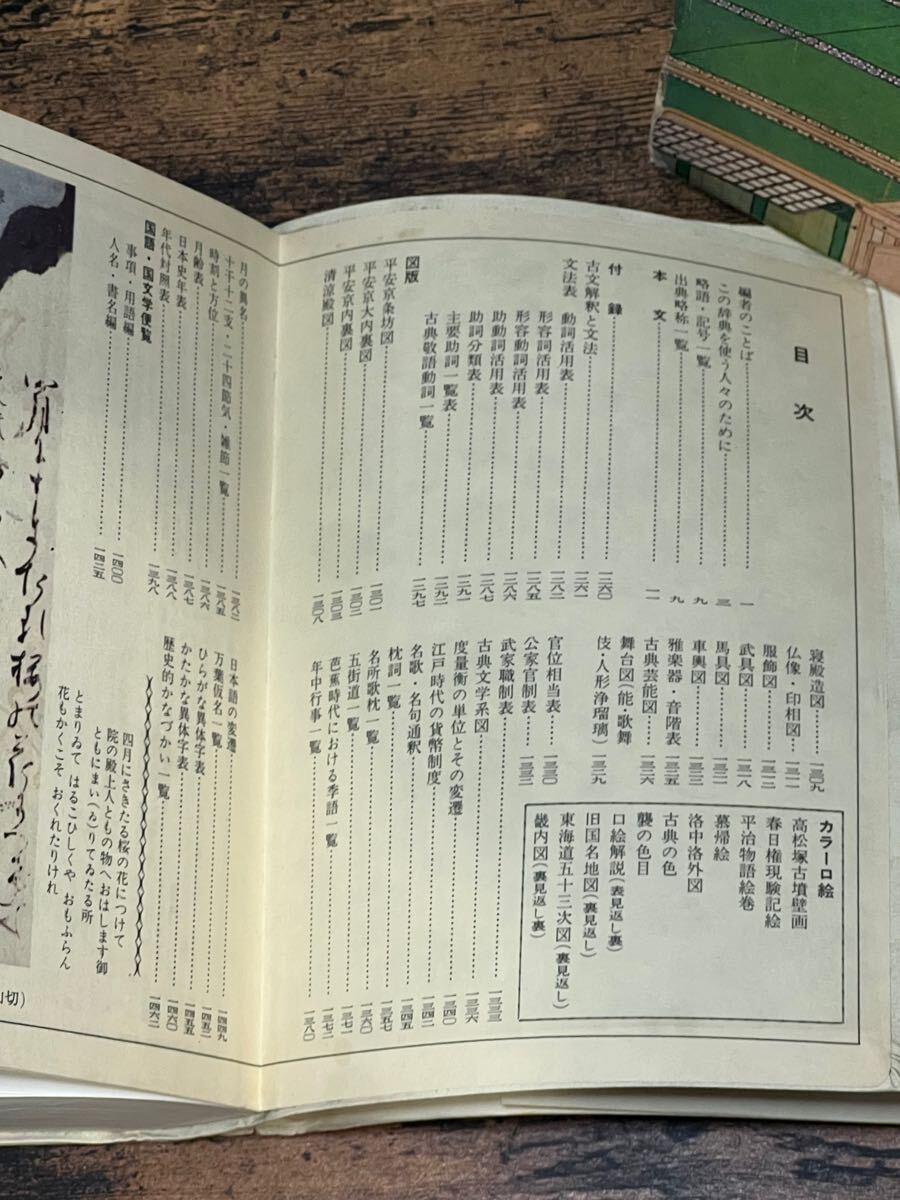 目次
編者のことば 一
この辞典を使う人々のために 三
略語・記号一覧 九
出典略称一覧 九
本文 一一
付録
古文解釈と文法 一二六〇
文法表 動詞活用表 一二六一
形容詞活用表 一二八二
形容動詞活用表 一二八五
助動詞活用表 一二八六
助詞分類表 一二八七
主要助詞一覧表 一二九一
古典敬語動詞一覧 一二九二
図版 一二九七
平安京条坊図 一三〇一
平安京大内裏図 一三〇二
平安京内裏図 一三〇三
清涼殿図 一三〇八
寝殿造図 一三〇九
仏像・印相図 一三一一
服飾図 一三一二
武具図 一三一八
馬具図 一三二一
車輿図 一三二三
雅楽器・音階表 一三二五
古典芸能図 一三二六
舞台図(能・歌舞
伎・人形浄瑠璃) 一三二九
官位相当表 一三三〇
公家官制表 一三三二
武家職制表 一三三三
古典文学系図 一三三六
度量衡の単位とその変遷 一三四〇
江戸時代の貨幣制度 一三四二
名歌・名句通釈 一三四五
枕詞一覧 一三五七
名所歌枕一覧 一三六〇
五街道一覧 一三七一
芭蕉時代における季語一覧 一三七二
年中行事一覧 一三八〇
カラー口絵
高松塚古墳壁画
春日権現験記絵
平治物語絵巻
慕帰絵
洛中洛外図
古典の色
襲の色目
口絵解説(表見返し裏)
旧国名地図(裏見返し)
東海道五十三次図(裏見返し)
畿内図(裏見返し裏)
月の異名 一三八二
十干十二支・二十四節気・雑節一覧 一三八五
時刻と方位 一三八六
月齢表 一三八七
日本史年表 一三八八
年代対照表 一三九八
国語・国文学便覧
事項・用語編 一四〇〇
人名・書名編 一四二五
日本語の変遷 一四四九
万葉仮名一覧 一四五二
ひらがな異体字表 一四五五
かたかな異体字表 一四六〇
歴史的かなづかい一覧 一四六二
四月にさきたる桜の花につけて
院の殿上人ともの物へおはします御
ともにまい(ゐ)りてゐたる所
とまりゐて はるこひしくや、おもふらん
花もかくこそ おくれたりけれ
切)